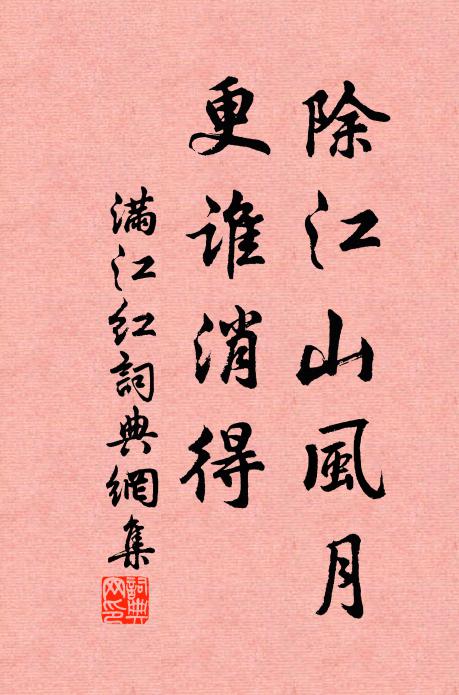 除江山風月
更誰消得
滿江紅詞典網集
詞典网印